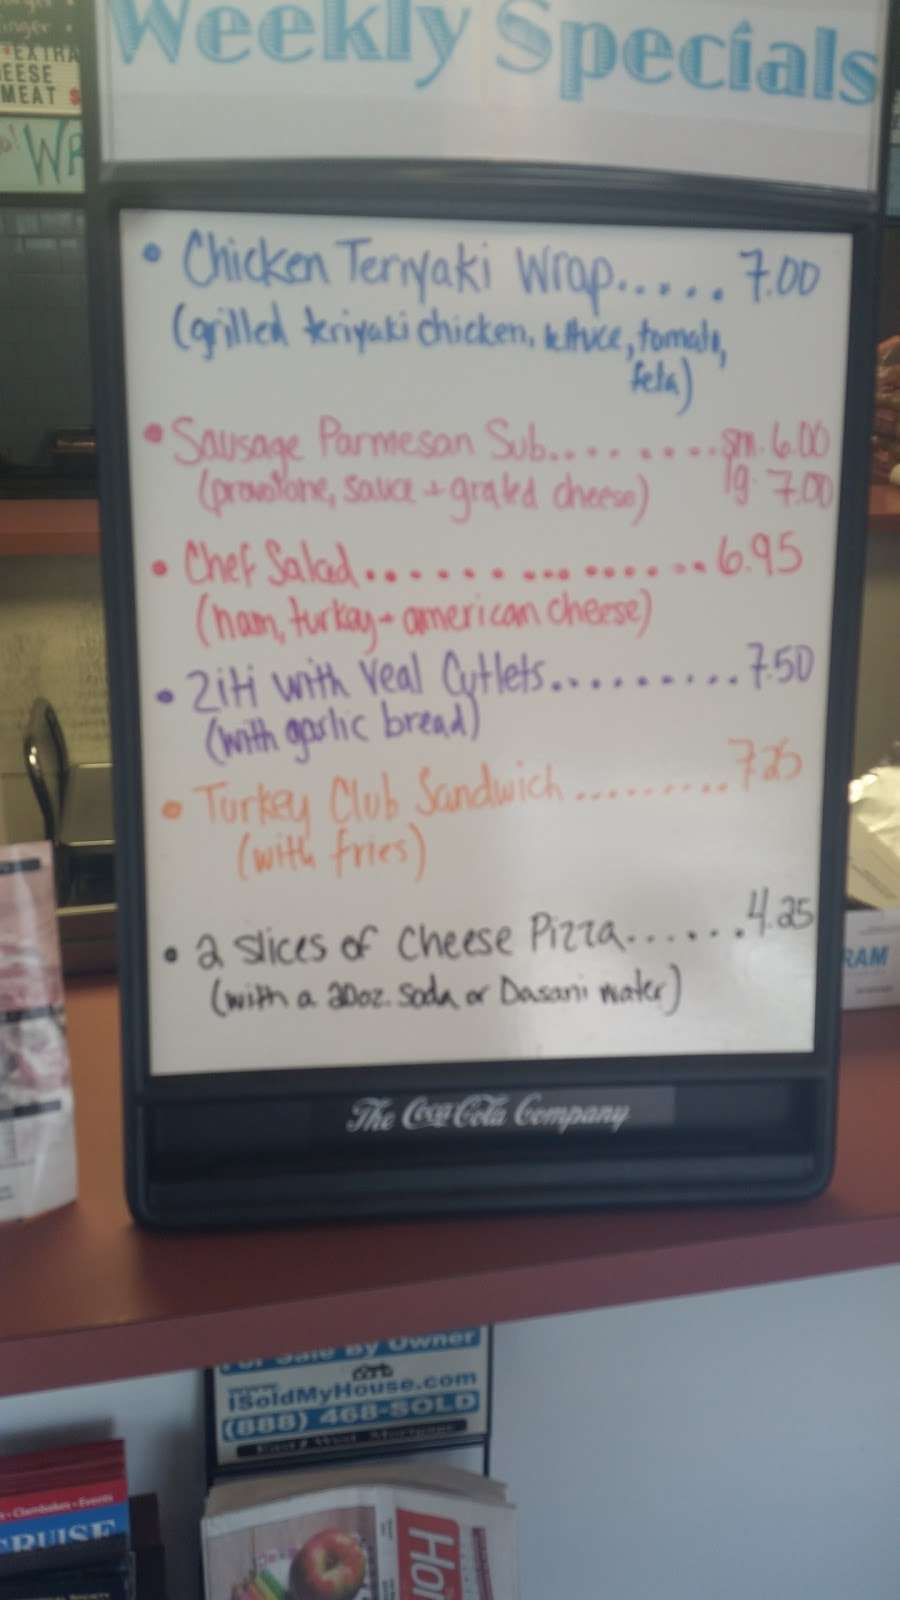 EXTRA
MEAT $
Weekly Specials
• Chicken Teriyaki Wrap..... 7.00
(grilled teriyaki chicken, lettuce, tomato,
feta)
• Sausage Parmesan Sub........ sm. 6.00
(provolone, sauce + grated cheese) lg. 7.00
• Chef Salad............... 6.95
(ham, turkey + american cheese)
• Ziti with Veal Cutlets......... 7.50
(with garlic bread)
• Turkey Club Sandwich......... 7.25
(with fries)
• 2 slices of Cheese Pizza...... 4.25
(with a 20oz. soda or Dasani water)
The Coca-Cola Company
RAM
For Sale By Owner
ISoldMyHouse.com
(888) 468-SOLD
• Clambakes • Events
RUISE
Hom